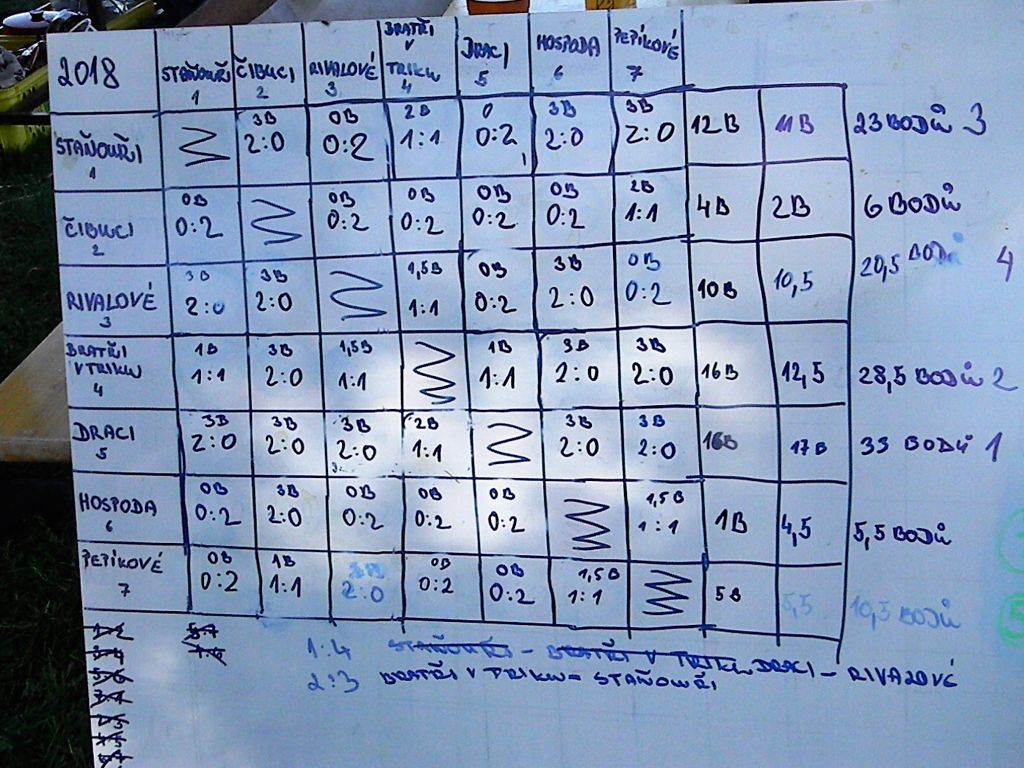 2018 STAŇOUŘI 1 ČIBUCI 2 RIVALOVÉ 3 BRATŘI V TRIKU 4 DRACI 5 HOSPODA 6 PEPÍKOVÉ 7
STAŇOUŘI 1 3B 2:0 0B 0:2 2B 1:1 0 0:2 3B 2:0 3B 2:0 12B 11B 23 BODŮ 3
ČIBUCI 2 0B 0:2 0B 0:2 0B 0:2 0B 0:2 0B 0:2 2B 1:1 4B 2B 6 BODŮ
RIVALOVÉ 3 3B 2:0 3B 2:0 1,5B 1:1 0B 0:2 3B 2:0 0B 0:2 10B 10,5 20,5 BODŮ 4
BRATŘI V TRIKU 4 1B 1:1 3B 2:0 1,5B 1:1 1B 1:1 3B 2:0 3B 2:0 16B 12,5 28,5 BODŮ 2
DRACI 5 3B 2:0 3B 2:0 3B 2:0 2B 1:1 3B 2:0 3B 2:0 16B 17B 33 BODŮ 1
HOSPODA 6 0B 0:2 3B 2:0 0B 0:2 0B 0:2 0B 0:2 1,5B 1:1 1B 4,5 5,5 BODŮ
PEPÍKOVÉ 7 0B 0:2 1B 1:1 3B 2:0 0B 0:2 0B 0:2 1,5B 1:1 5B 5,5 10,5 BODŮ 5
1:4 STAŇOUŘI - BRATŘI V TRIKU DRACI - RIVALOVÉ
2:3 BRATŘI V TRIKU - STAŇOUŘI